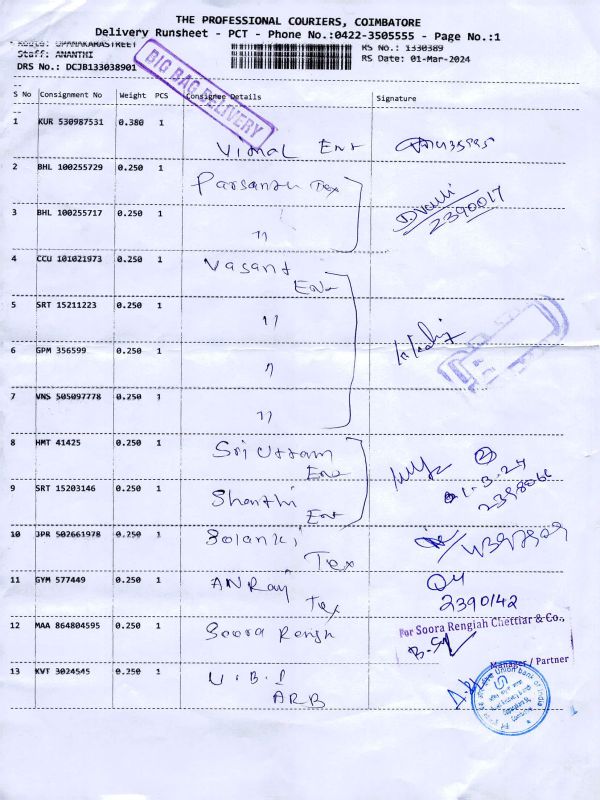 THE PROFESSIONAL COURIERS, COIMBATORE
Delivery Runsheet - PCT - Phone No.:0422-3505555 - Page No.:1
Route: UPANAKARASTREET
Staff: ANANTHI
DRS No.: DCJB133038901
RS No.: 1330389
RS Date: 01-Mar-2024
BIG BAG DELIVERY
S No Consignment No Weight PCS Consignee Details Signature
1 KUR 530987531 0.380 1 Vimal Ent
2 BHL 100255729 0.250 1 Parsanth Tex
3 BHL 100255717 0.250 1 "
D.Valli
2390017
4 CCU 101021973 0.250 1 Vasant
Ent
5 SRT 15211223 0.250 1 "
6 GPM 356599 0.250 1 "
7 VNS 505097778 0.250 1 "
8 HMT 41425 0.250 1 Sri Uttam
Ent
2
1.3.24
9 SRT 15203146 0.250 1 Shanthi
Ent
10 JPR 502661978 0.250 1 Solanki
Tex
11 GYM 577449 0.250 1 ANRaj
Tex
2390142
12 MAA 864804595 0.250 1 Soora Rengh
For Soora Rengiah Chettiar & Co.,
Manager / Partner
13 KVT 3024545 0.250 1 U.B.I
ARB
Union bank of India